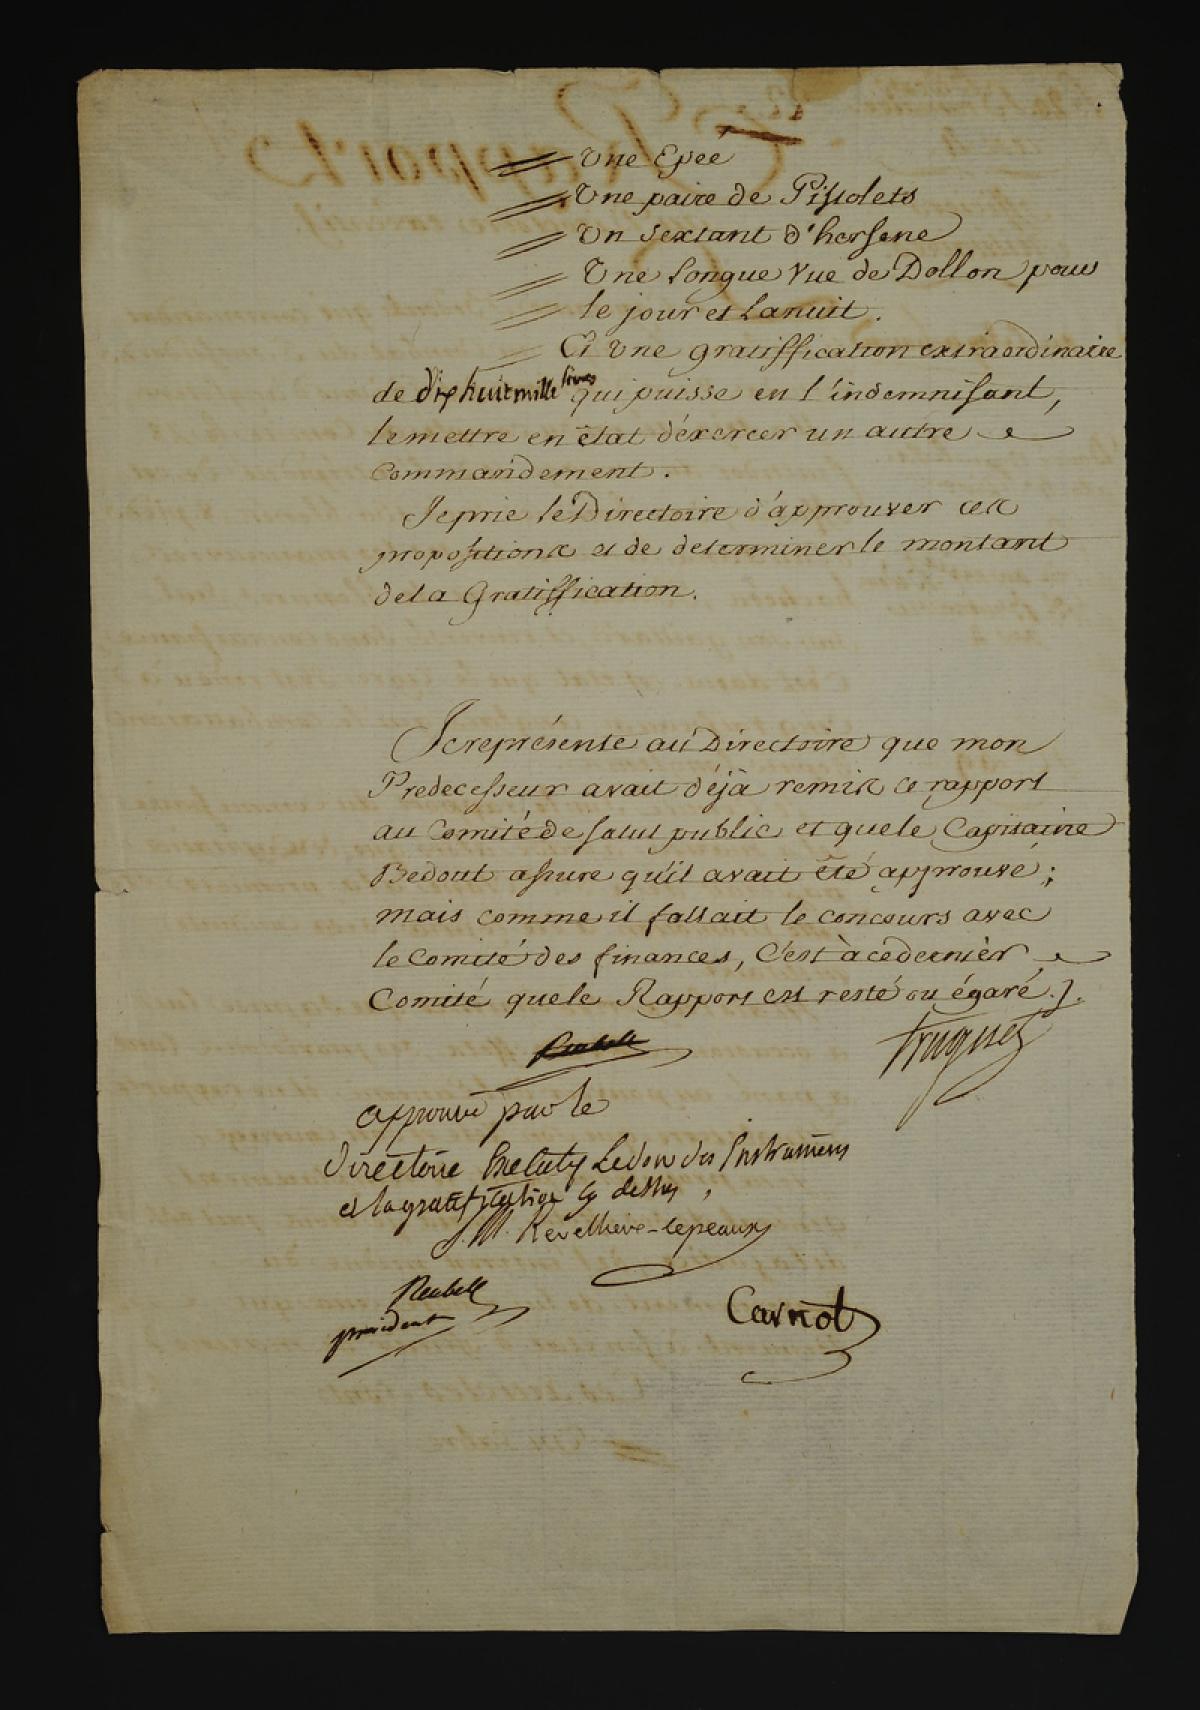 Une Epeé
Une paire de Pistolets
Un Sextant d'hersene
Une Longue Vue de Dollon pour
le jour et Lanuit.
Et Une gratiffication extraordinaire
de dix huit mille livres qui puisse en l'indemnisant,
le mettre en êtat déxercer un autre
Commandement.
Je prie le Directoire d'approuver ces
propositions et de determiner le montant
de la Gratiffication.
Je représente au Directoire que mon
Predecesseur avait déjà remis ce rapport
au Comité de Salut public et que le Capitaine
Bedout assure qu'il avait êté approuvé;
mais comme il fallait le concours avec
le Comité des finances, C'est à ce dernièr
Comité que le Rapport est resté ou égaré.
Truguet
Reubell
approuvé par le
Directoire Executif Le don des Instrumens
et la gratification cy dessus,
J. M. Revelliere-lepeaux
Reubell
president
Carnot